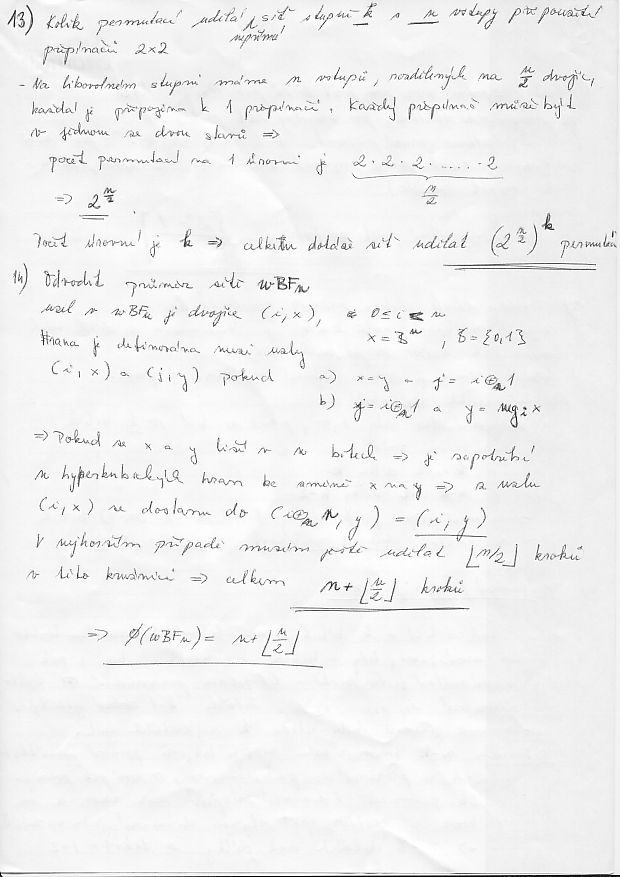 13) Kolik permutací udělá nepřímá síť stupně k s n vstupy při použití
přepínačů 2×2
- Na libovolném stupni máme n vstupů, rozdělených na n/2 dvojic,
každá je připojena k 1 přepínači. Každý přepínač může být
v jednom ze dvou stavů ⇒
počet permutací na 1 úrovni je 2 · 2 · 2 · ..... · 2
n/2
⇒ 2^(n/2).
Počet úrovní je k ⇒ celkem dokáže síť udělat (2^(n/2))^k permutací
14) Odvodit průměr sítě wBFn
uzel v wBFn je dvojice (i, x), 0 ≤ i < n
x = B^n, B = {0,1}
Hrana je definována mezi uzly
(i, x) a (j, y) pokud a) x = y a j = i ⊕n 1
b) j = i ⊕n 1 a y = neg i x
⇒ Pokud se x a y liší v n bitech ⇒ je zapotřebí
n hyperkubických hran ke změně x na y ⇒ z uzlu
(i, x) se dostanu do (i ⊕n n, y) = (i, y)
V nejhorším případě musím ještě udělat ⌊n/2⌋ kroků
v této kružnici ⇒ celkem n + ⌊n/2⌋ kroků
⇒ ø(wBFn) = n + ⌊n/2⌋